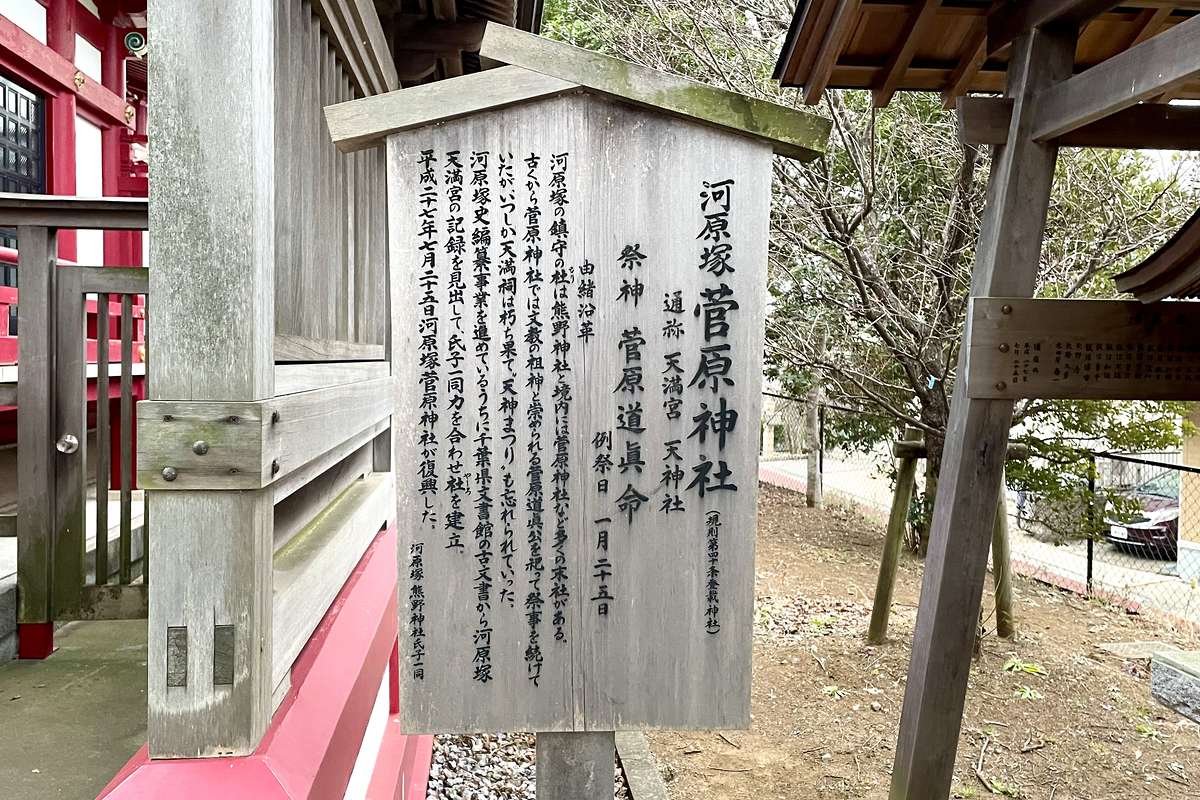 河原塚菅原神社(規則第四十条登載神社)
通祢 天満宮 天神社
祭神 菅原道眞命
例祭日 一月二十五日
由緒沿革
河原塚の鎮守の杜は熊野神社と境内には菅原神社など多くの末社がある。
古くから菅原神社では文教の祖神と崇められる菅原道眞公を祀って祭事を続けて
いたがいつしか天満祠は朽ち果て〝天神まつり〟も忘れられていった。
河原塚史編纂事業を進めているうちに千葉県文書館の古文書から河原塚
天満宮の記録を見出して、氏子一同力を合わせ社を建立、
平成二十七年七月二十五日河原塚菅原神社が復興した。
河原塚 熊野神社氏子一同